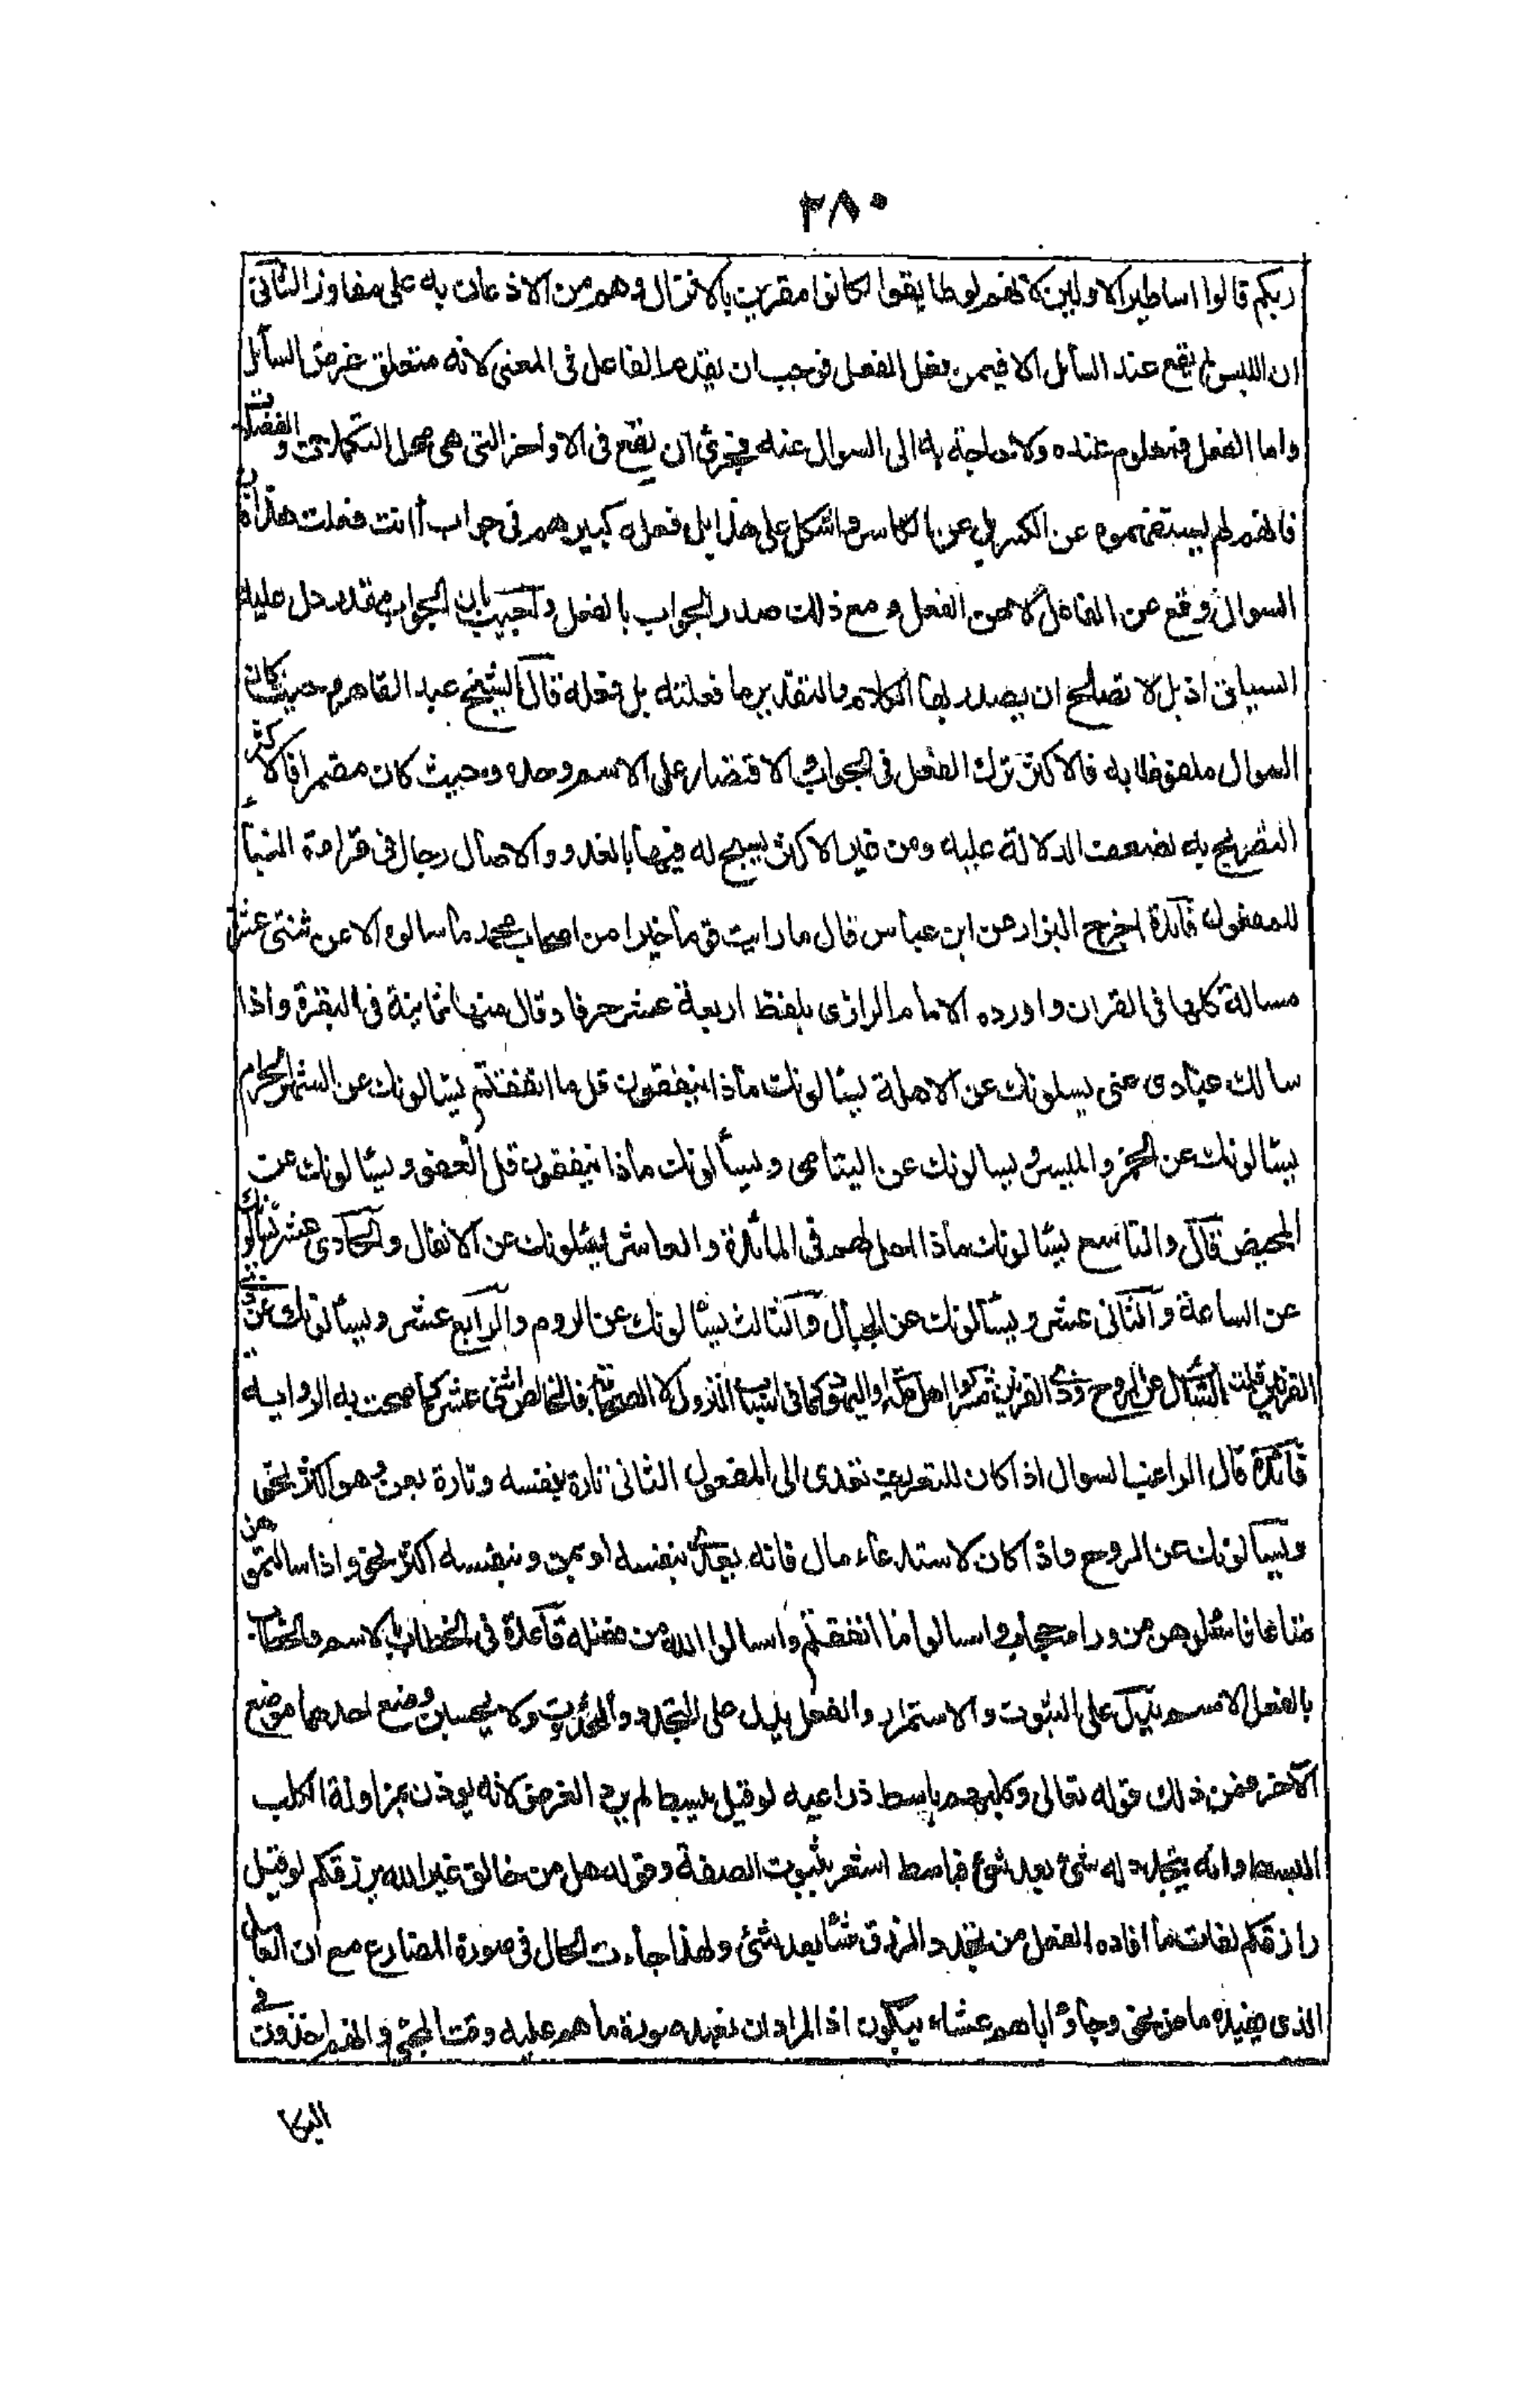 ٢٨٠
ربكم قالوا اساطير الاولين لانهم لو طابقوا لكانوا مقرين بالانزال وهم من الاذعان به على مفاوز الثاني
ان اللبس لم يقع عند السائل الا فيمن فعل الفعل فوجب ان يقدم الفاعل فى المعنى لانه متعلق غرض السائل
واما الفعل فمعلوم عنده ولا حاجة به الى السوال عنه فحرى ان يقع فى الاواخر التى هى محل التكملات والفضلات
فانهم لم يستفهموه عن الكسر بل عن الكاسر واشكل على هذا بل فعله كبيرهم فى جواب أانت فعلت هذا فان
السوال وقع عن الفاعل لا عن الفعل ومع ذلك صدر الجواب بالفعل واجيب بان الجواب مقدر دل عليه
السياق اذ بل لا تصلح ان يصدر بها الكلام والتقدير ما فعلته بل فعله قال الشيخ عبد القاهر وحيث كان
السوال ملفوظا به فالاكثر ترك الفعل فى الجواب والاقتصار على الاسم وحده وحيث كان مضمرا فالاكثر
التصريح به لضعف الدلالة عليه ومن غير الاكثر يسبح له فيها بالغدو والاصال رجال فى قراءة البناء
للمفعول فائدة اخرج البزار عن ابن عباس قال ما رايت قوما خيرا من اصحاب محمد ما سالوه الا عن ثنتى عشرة
مسالة كلها فى القران واورده الامام الرازى بلفظ اربعة عشر حرفا وقال منها ثمانية فى البقرة واذا
سالك عبادى عنى يسلونك عن الاهلة يسالونك ماذا ينفقون قل ما انفقتم يسالونك عن الشهر الحرام
يسالونك عن الخمر والميسر ويسالونك عن اليتامى ويسألونك ماذا ينفقون قل العفو ويسالونك عن
المحيض قال والتاسع يسالونك ماذا احل لهم فى المائدة والعاشر يسئلونك عن الانفال والحادى عشر يسالونك
عن الساعة والثانى عشر ويسألونك عن الجبال والثالث يسالونك عن الروم والرابع عشر ويسألونك عن ذى
القرنين قلت السائل عن الروح وذى القرنين مشركوا اهل مكة او اليهود كما فى اسباب النزول لا الصحابة فالخالص اثنى عشر كما صحت به الرواية
فائدة قال الراغب السوال اذا كان للتعريف تعدى الى المفعول الثانى تارة بنفسه وتارة بعن وهو اكثر نحو
ويسألونك عن الروح واذا كان لاستدعاء مال فانه يعدى بنفسه او بمن وبنفسه اكثر نحو واذا سالتموهن
متاعا فاسئلوهن من وراء حجاب واسالوا ما انفقتم واسالوا الله من فضله قاعدة فى الخطاب بالاسم والخطاب
بالفعل الاسم يدل على الثبوت والاستمرار والفعل يدل على التجدد والحدوث ولا يحسن وضع احدهما موضع
الآخر فمن ذلك قوله تعالى وكلبهم باسط ذراعيه لو قيل يبسط لم يرد الغرض لانه يوذن بمزاولة الكلب
البسط وانه يتجدد له شئ بعد شئ فباسط اشعر بثبوت الصفة وقوله هل من خالق غير الله يرزقكم لو قيل
رازقكم لفات ما افاده الفعل من تجدد الرزق شئا بعد شئ ولهذا جاءت الحال فى صورة المضارع مع ان العامل
الذى يفيده ماض نحو وجاؤا اباهم عشاء يبكون اذ المراد ان يفيد صورة ما هم عليه وقت المجئ وانهم اخذون فى
البكا